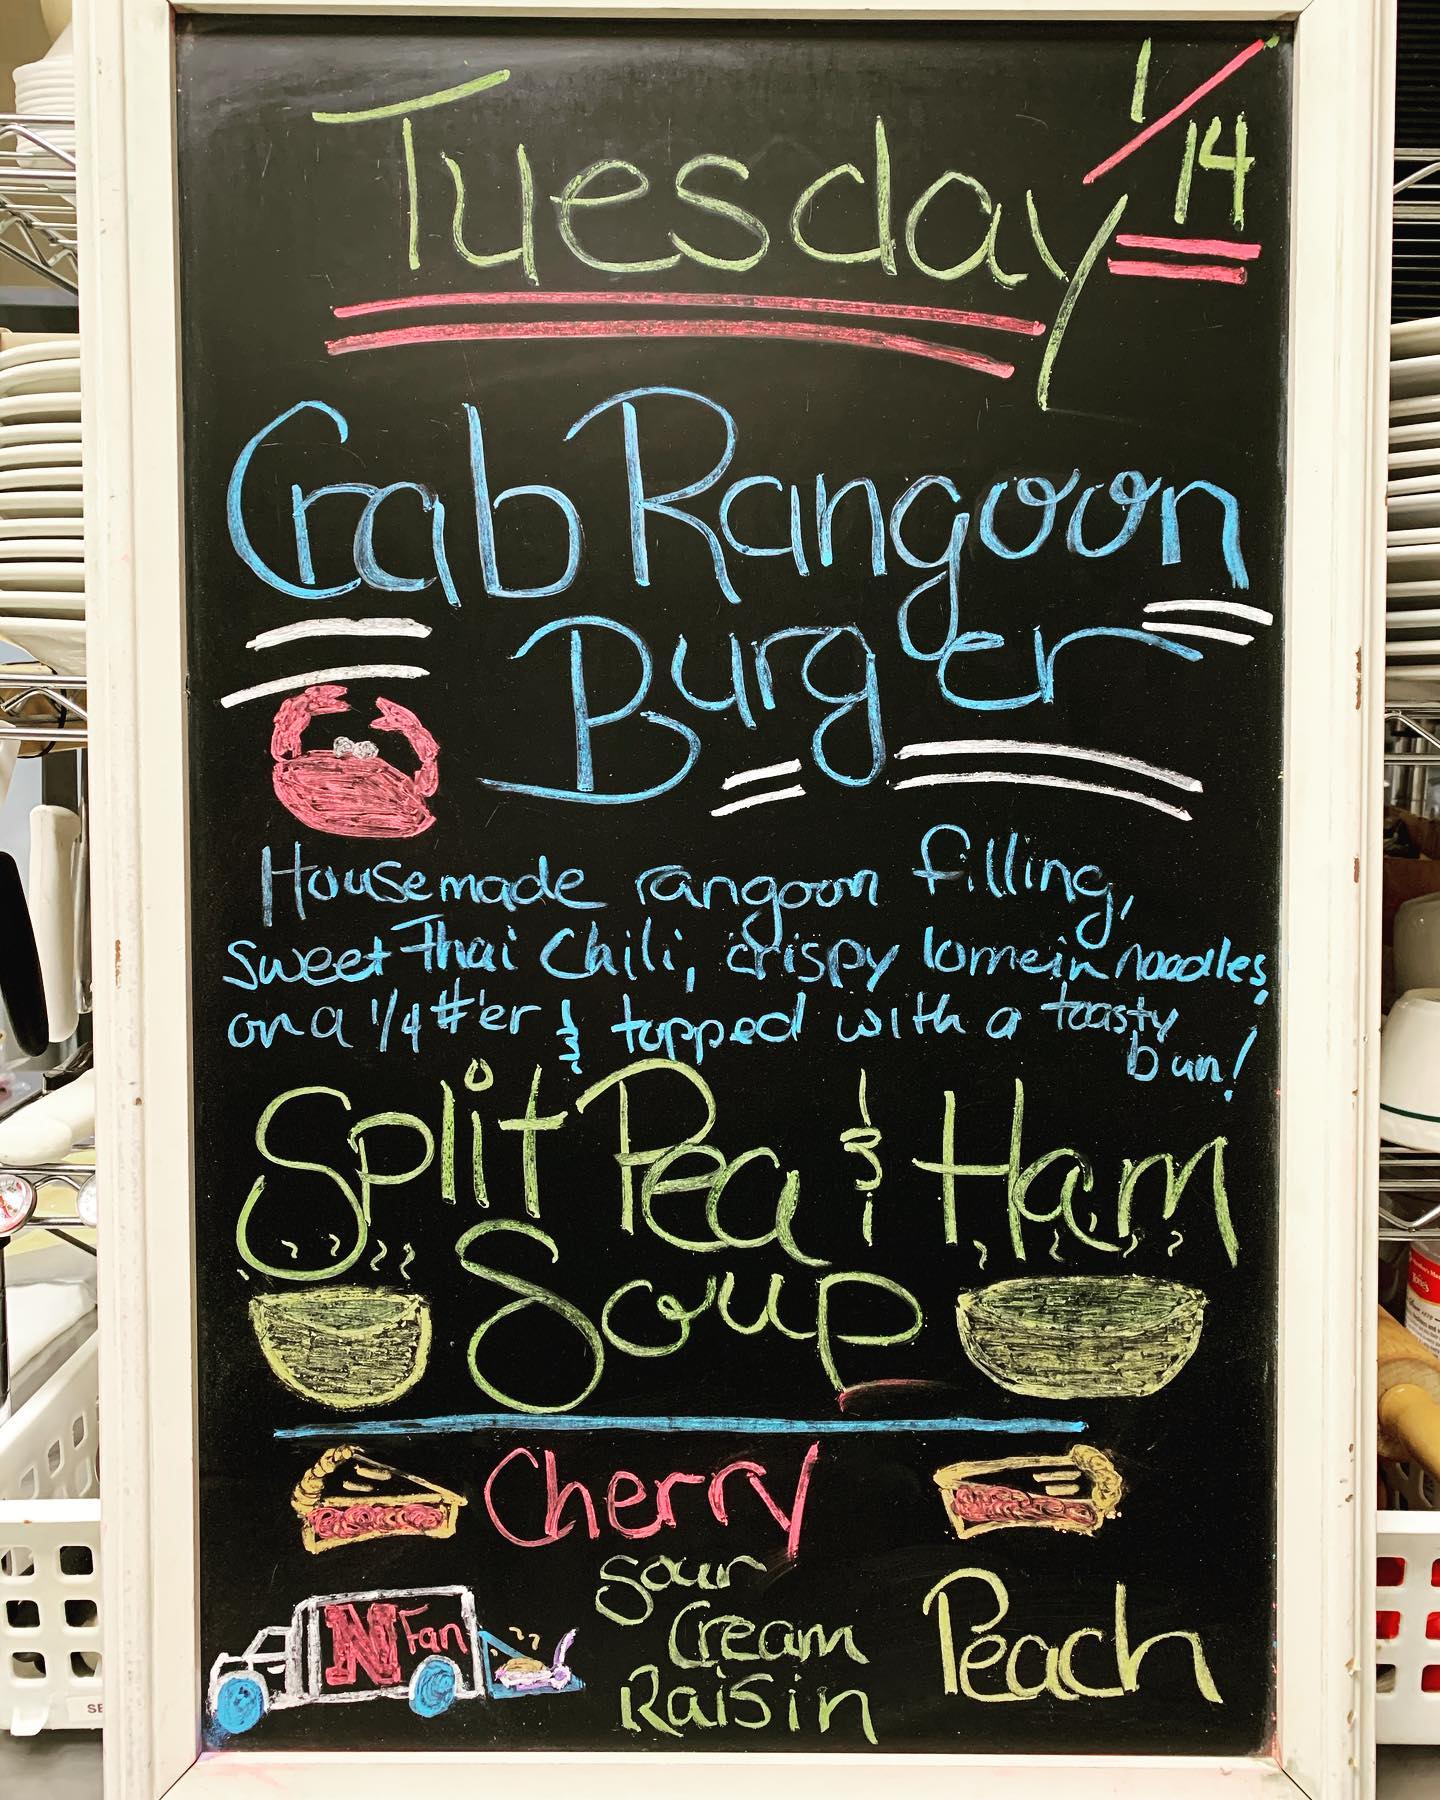 Tuesday 1/14
Crab Rangoon
Burger
Housemade rangoon filling,
sweet Thai Chili, crispy lomein noodles,
on a 1/4 #'er & topped with a toasty
bun!
Split Pea & Ham
Soup
Cherry
Sour
Cream
Raisin
Peach
N Fan